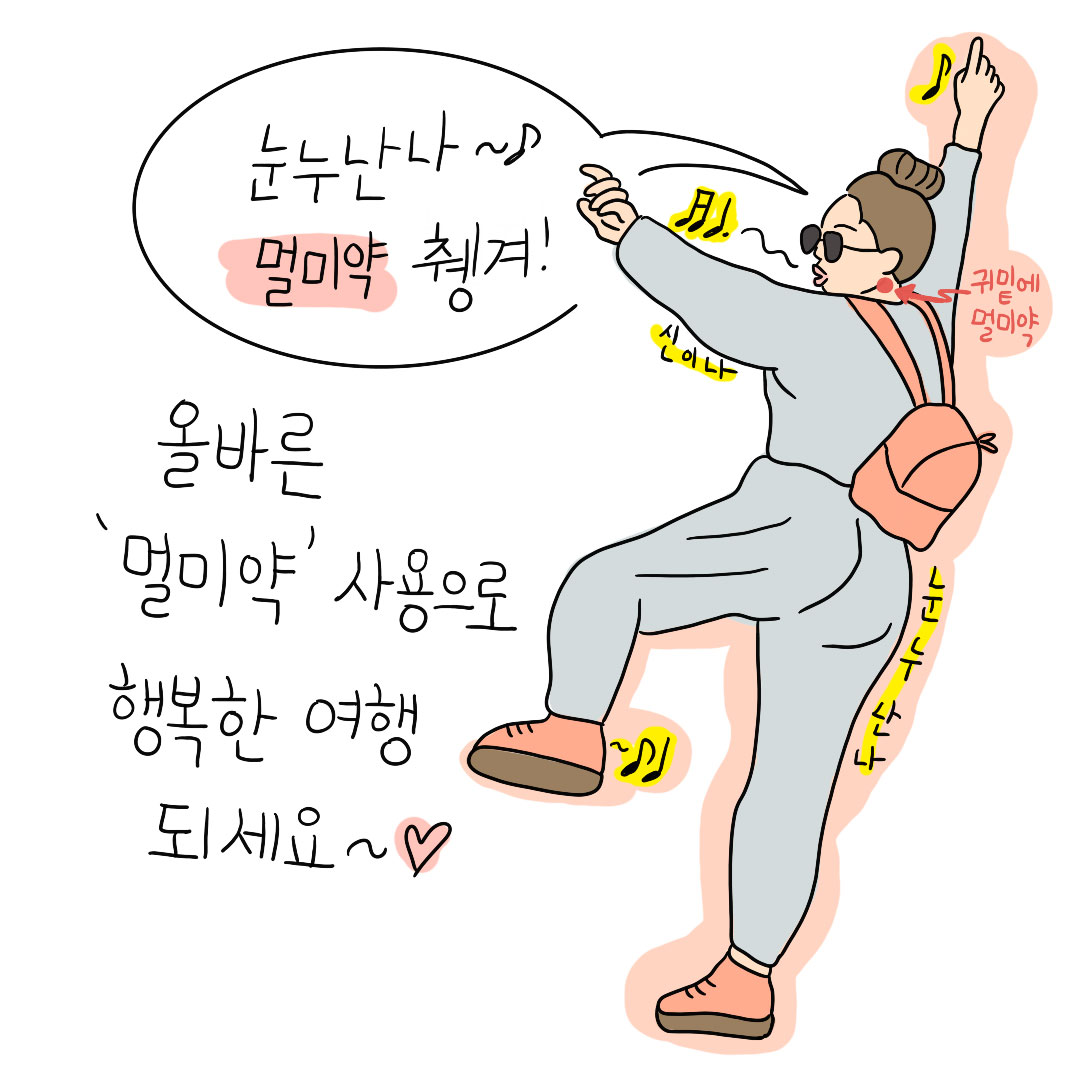 눈누난나~♪
멀미약 췡겨!
신이나
귀밑에
멀미약
올바른
'멀미약' 사용으로
행복한 여행
되세요~♡
눈누난나